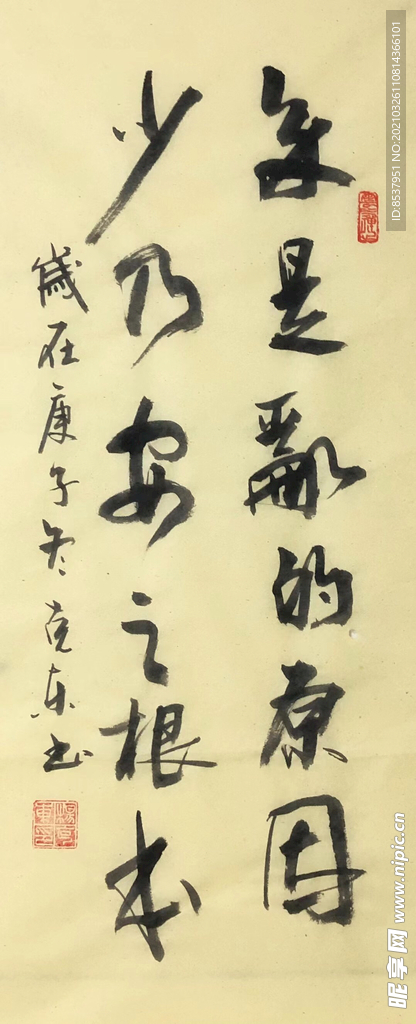 多是亂的原因
少乃安之根本
歲在庚子冬 克东书
ID:8537951 NO:20210326110814366101
昵享网 www.nipic.cn